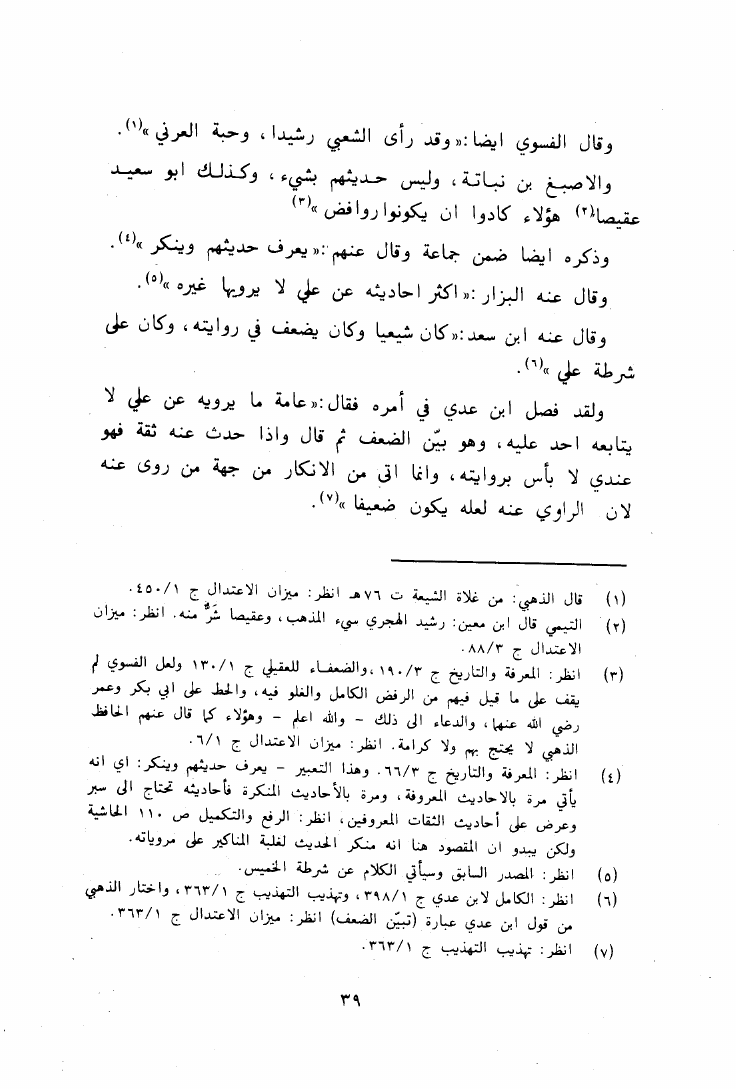 وقال الفسوي ايضا :« وقد رأى الشعبي رشيدا ، وحبة العرني »(١).
والاصبغ بن نباتة ، وليس حديثهم بشيء ، وكذلك ابو سعيد
عقيصا(٢) هؤلاء كادوا ان يكونوا روافض »(٣)
وذكره ايضا ضمن جماعة وقال عنهم :« يعرف حديثهم وينكر »(٤).
وقال عنه البزار :« اكثر احاديثه عن علي لا يرويها غيره »(٥).
وقال عنه ابن سعد :« كان شيعيا وكان يضعف في روايته ، وكان على
شرطة علي »(٦).
ولقد فصل ابن عدي في أمره فقال :« عامة ما يرويه عن علي لا
يتابعه احد عليه ، وهو بيّن الضعف ثم قال واذا حدث عنه ثقة فهو
عندي لا بأس بروايته ، وانما اتى من الانكار من جهة من روى عنه
لان الراوي عنه لعله يكون ضعيفا »(٧).
(١) قال الذهبي : من غلاة الشيعة ت ٧٦هـ انظر : ميزان الاعتدال ج ٤٥٠/١.
(٢) التيمي قال ابن معين : رشيد الهجري سيء المذهب ، وعقيصا شَرٌّ منه. انظر : ميزان
الاعتدال ج ٨٨/٣.
(٣) انظر : المعرفة والتاريخ ج ١٩٠/٣ ، والضعفاء للعقيلي ج ١٣٠/١ ولعل الفسوي لم
يقف على ما قيل فيهم من الرفض الكامل والغلو فيه ، والحط على ابي بكر وعمر
رضي الله عنهما ، والدعاء الى ذلك - والله اعلم - وهؤلاء كما قال عنهم الحافظ
الذهبي لا يحتج بهم ولا كرامة. انظر : ميزان الاعتدال ج ٦/١.
(٤) انظر : المعرفة والتاريخ ج ٦٦/٣. وهذا التعبير - يعرف حديثهم وينكر : اي انه
يأتي مرة بالاحاديث المعروفة ، ومرة بالأحاديث المنكرة فأحاديثه تحتاج الى سبر
وعرض على أحاديث الثقات المعروفين ، انظر : الرفع والتكميل ص ١١٠ الحاشية
ولكن يبدو ان المقصود هنا انه منكر الحديث لغلبة المناكير على مروياته.
(٥) انظر : المصدر السابق وسيأتي الكلام عن شرطة الخميس.
(٦) انظر : الكامل لابن عدي ج ٣٩٨/١ ، وتهذيب التهذيب ج ٣٦٣/١ ، واختار الذهبي
من قول ابن عدي عبارة (تبيّن الضعف) انظر : ميزان الاعتدال ج ٣٦٣/١.
(٧) انظر : تهذيب التهذيب ج ٣٦٣/١.
٣٩